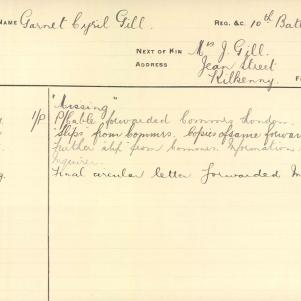 NAME Garnet Cyril Gill. REG. &C. 10th Batt
NEXT OF KIN Mrs J. Gill.
ADDRESS Jean Street
Kilkenny.
"Missing"
1/P P/Cable forwarded Commrs London.
"Slips" from Commrs. Copies of same forwar
Further "slip" from Commrs. Informations
Inquirer.
Final circular letter forwarded